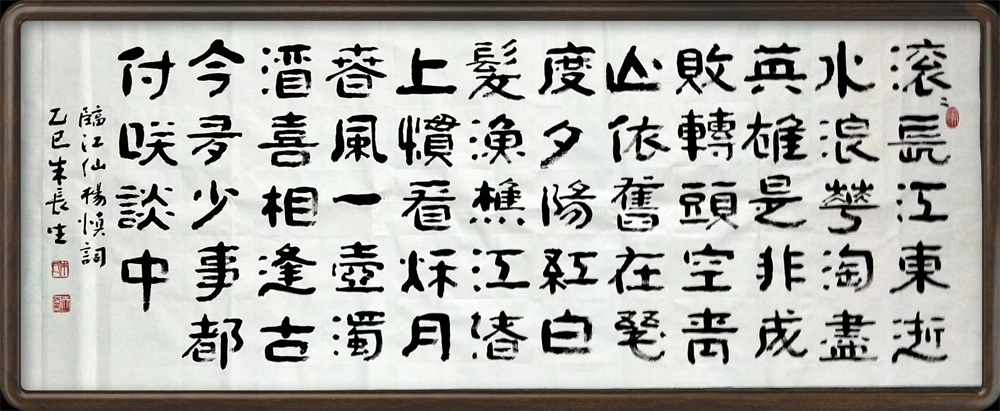 滚〻長江東逝
水浪華淘盡
英雄是非成
敗轉頭空青
山依舊在幾
度夕陽紅白
髮漁樵江渚
上慣看秌月
萅風一壺濁
酒喜相逢古
今多少事都
付咲談中
臨江仙楊慎詞
乙巳朱長生